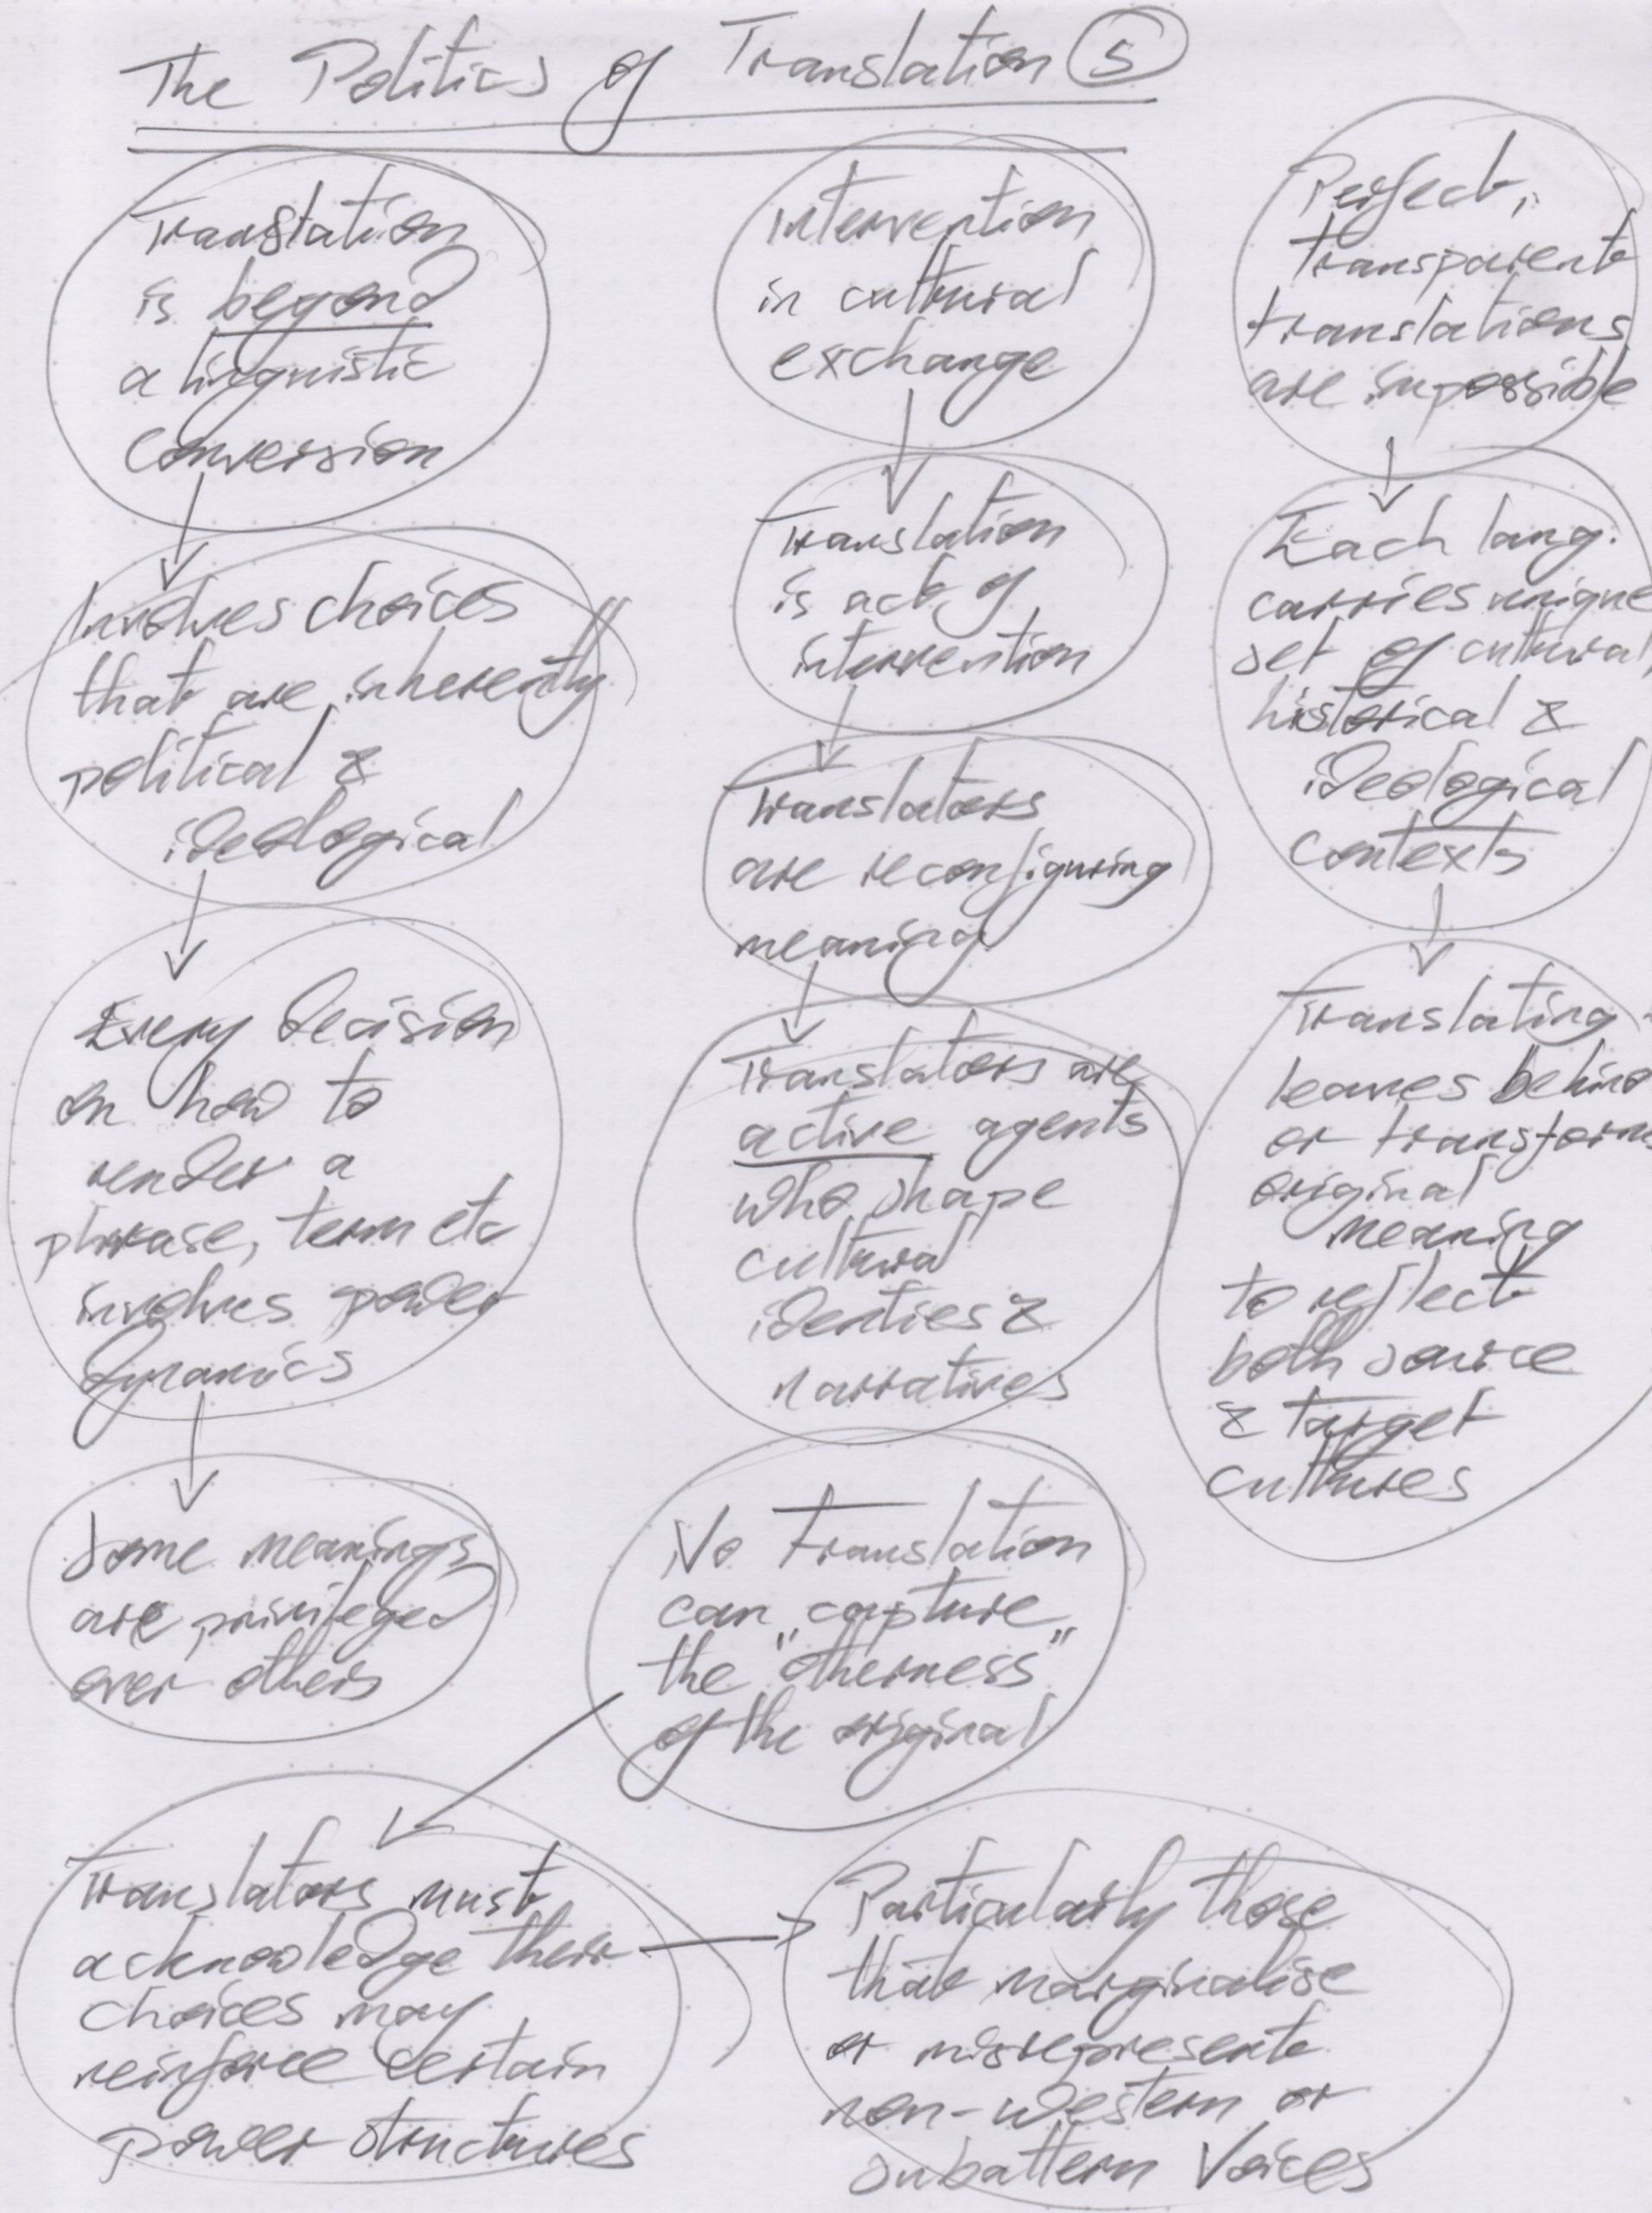 The Politics of Translation 5
Translation
is beyond
a linguistic
conversion
Involves choices
that are inherently
political &
ideological
Every decision
on how to
render a
phrase, term etc
involves power
dynamics
Some meanings
are privileged
over others
Intervention
in cultural
exchange
Translation
is act of
intervention
Translators
are reconfiguring
meaning
Translators are
active agents
who shape
cultural
identies &
narratives
Perfect,
transparent
translations
are impossible
Each lang.
carries unique
set of cultural
historical &
ideological
contexts
Translating
leaves behind
or transforms
original
meaning
to reflect
both source
& target
cultures
No translation
can „capture"
the "otherness"
of the original
Translators must
acknowledge their
choices may
reinforce certain
power structures
Particularly those
that marginalise
or misrepresent
non-western or
subaltern voices